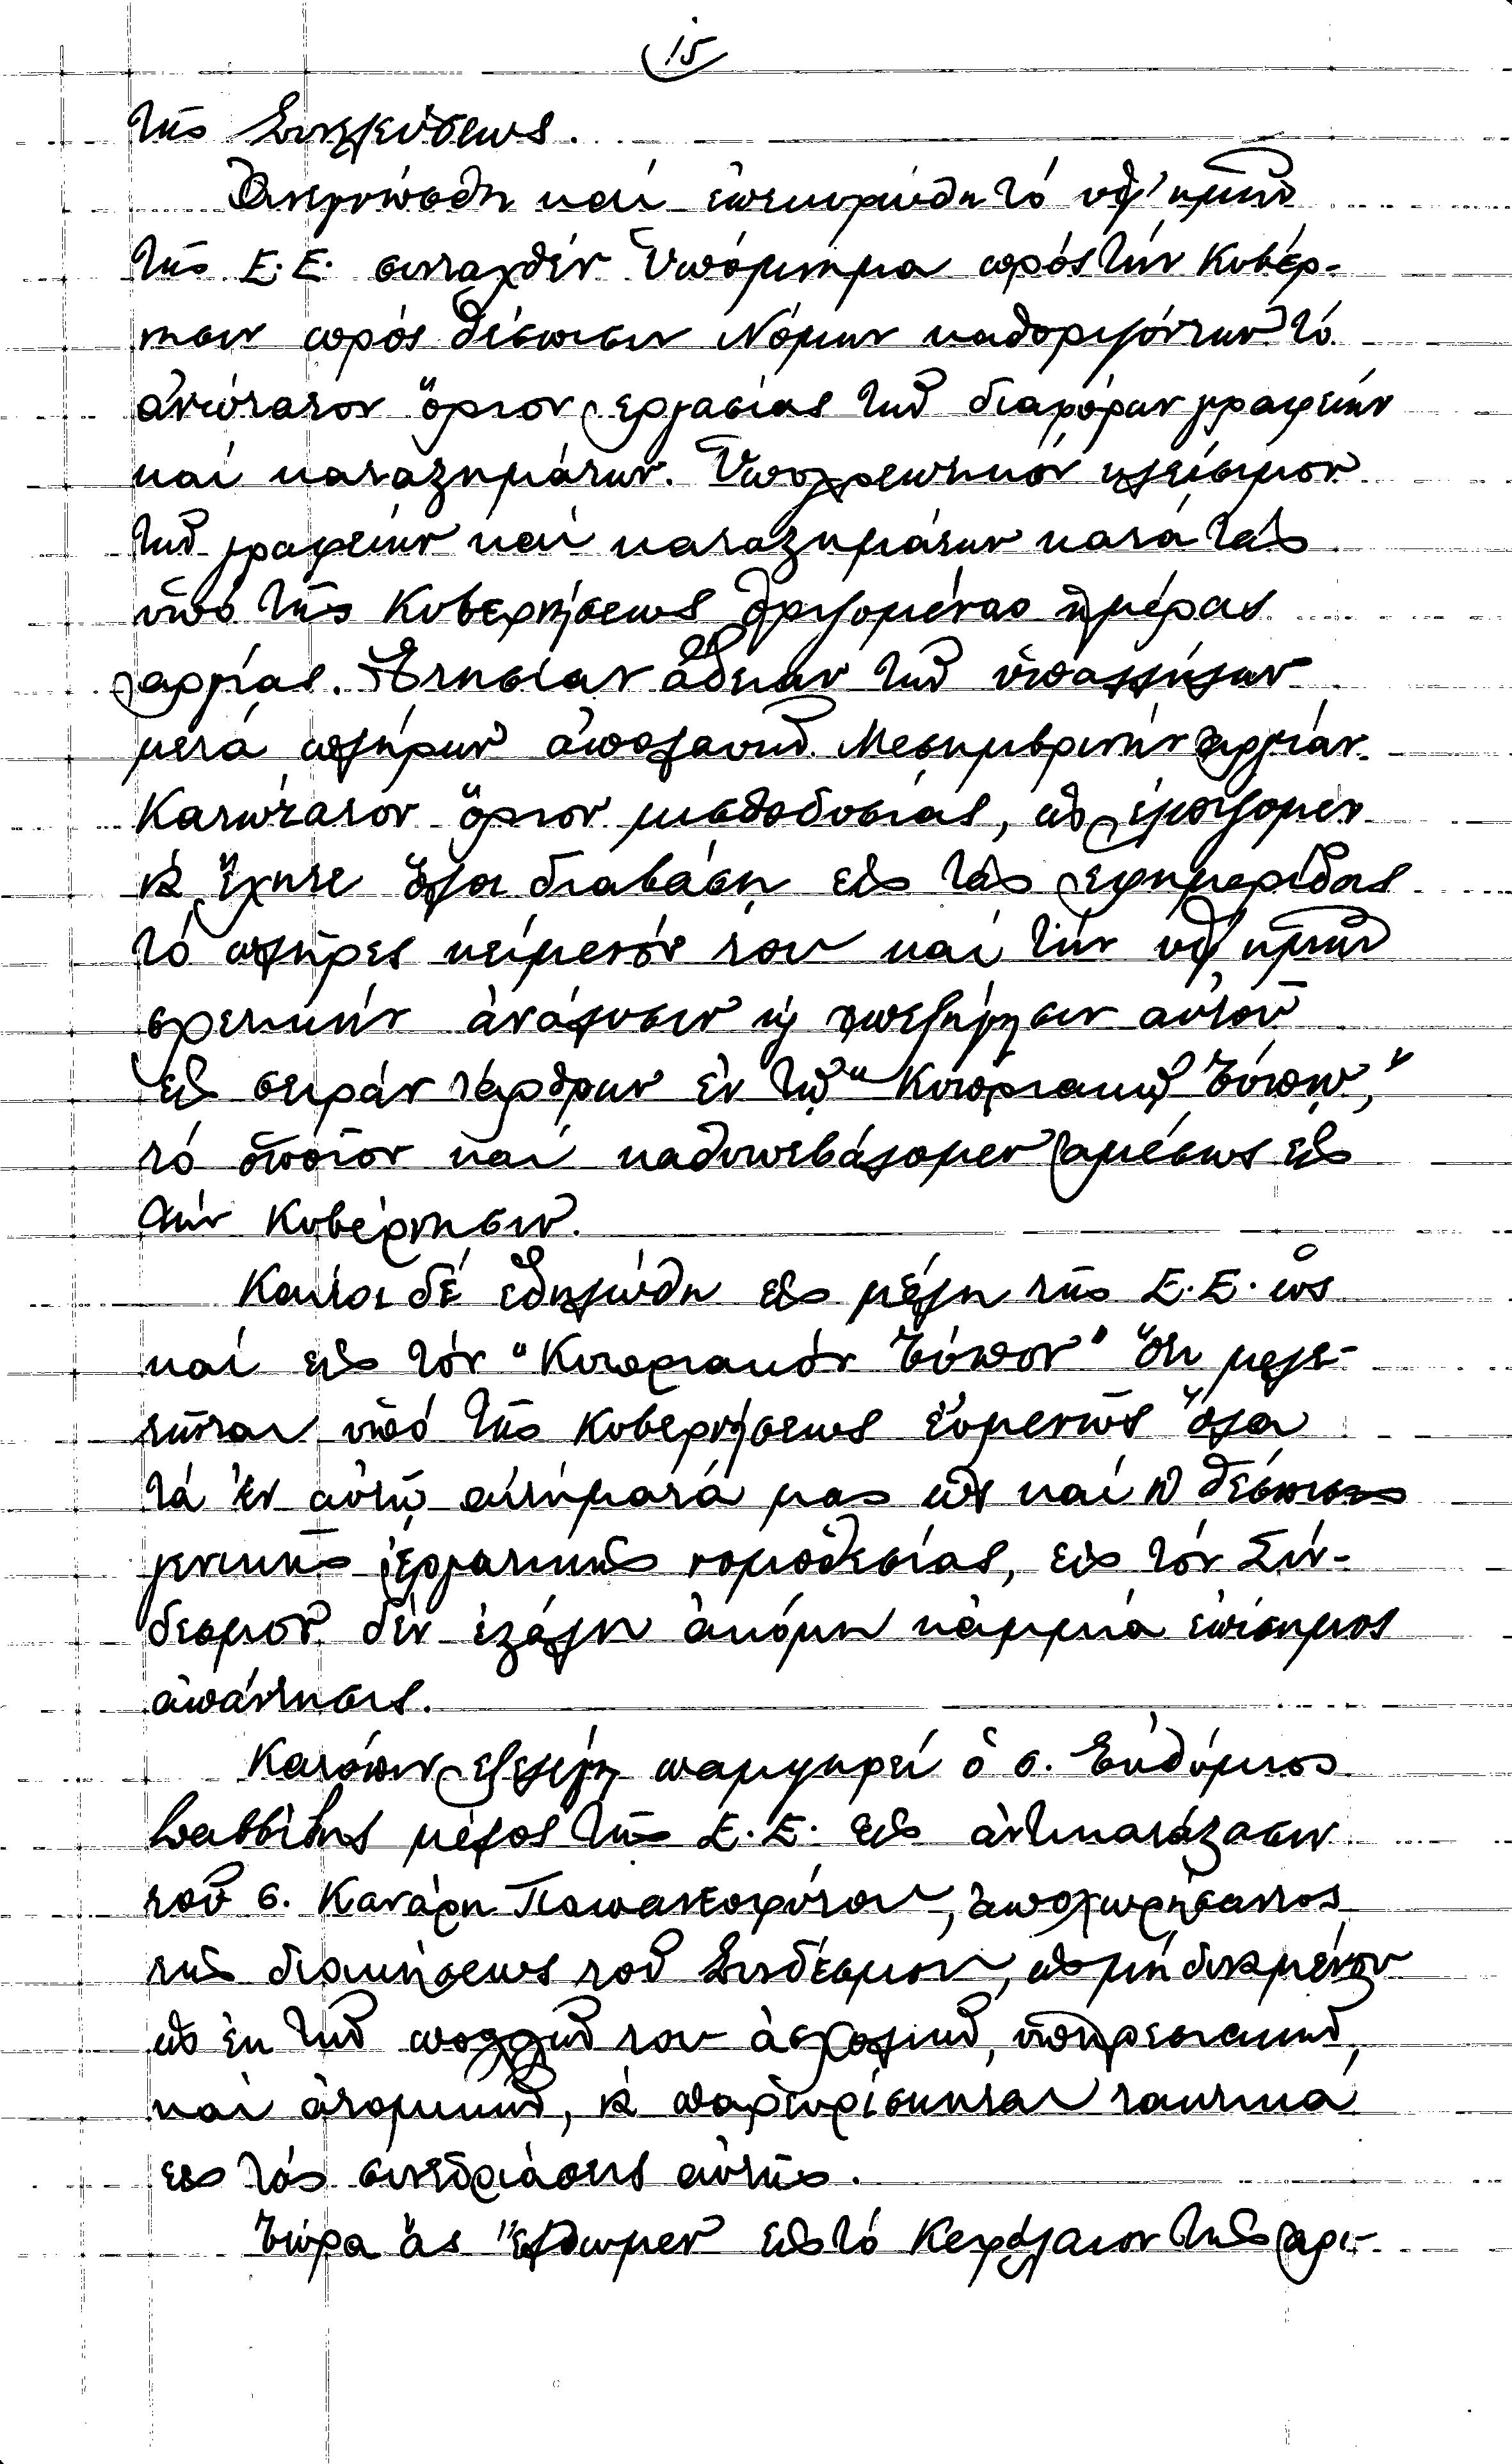 15
τῆς Συνελεύσεως.
Ἀνεγνώσθη καί ἐπεκυρώθη τό ὑφ' ἡμῶν
τῆς Ε.Ε. συνταχθέν Ὑπόμνημα πρός τήν Κυβέρ-
νησιν πρός θέσπισιν Νόμων καθοριζόντων τό
ἀνώτατον ὅριον ἐργασίας τῶν διαφόρων γραφείων
καί καταστημάτων. Ὑποχρεωτικόν κλείσιμον
τῶν γραφείων καί καταστημάτων κατά τάς
ὑπό τῆς Κυβερνήσεως ὁριζομένας ἡμέρας
ἀργίας. Ἐτησίαν ἄδειαν τῶν ὑπαλλήλων
μετά πλήρων ἀπολαυῶν. Μεσημβρινήν ἀργίαν.
Κατώτατον ὅριον μισθοδοσίας, ὡς ἐλπίζομεν
νά ἔχητε ὅλοι διαβάσῃ εἰς τάς ἐφημερίδας
τό πλῆρες κείμενόν του καί τήν ὑφ' ἡμῶν
σχετικήν ἀνάλυσιν ἤ ἐπεξήγησιν αὐτοῦ
εἰς σειράν ἄρθρων ἐν τῷ "Κυπριακῷ Τύπῳ,"
τό ὁποῖον καί καθυπεβάλομεν ἀμέσως εἰς
τήν Κυβέρνησιν.
Καίτοι δέ ἐδηλώθη εἰς μέλη τῆς Ε.Ε. ὡς
καί εἰς τόν "Κυπριακόν Τύπον" ὅτι μελε-
τῶνται ὑπό τῆς Κυβερνήσεως εὐμενῶς ὅλα
τά ἐν αὐτῷ αἰτήματά μας ὡς καί ἡ θέσπισις
γενικῆς ἐργατικῆς νομοθεσίας, εἰς τόν Σύν-
δεσμον δέν ἐστάλη ἀκόμη κάμμιά ἐπίσημος
ἀπάντησις.
Κατόπιν ἐξελέγη παμψηφεί ὁ σ. Εὐθύμιος
Σαββίδης μέλος τῆς Ε.Ε. εἰς ἀντικατάστασιν
τοῦ σ. Κανάρη Παπανεοφύτου, ἀποχωρήσαντος
τῆς διοικήσεως τοῦ Συνδέσμου, ὡς μή δυναμένου
ὡς ἐκ τῶν πολλῶν του ἀσχολιῶν, ὑπηρεσιακῶν,
καί ἀτομικῶν, νά παρευρίσκηται τακτικά
εἰς τάς συνεδριάσεις αὐτῆς.
Τώρα ἄς ἔλθωμεν εἰς τό Κεφάλαιον τῆς ἀρι-